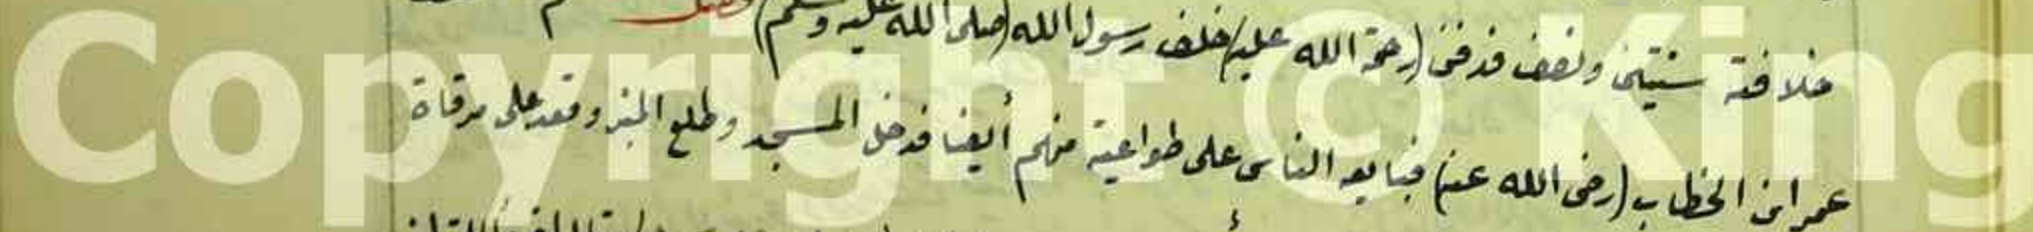 خلافة سنتين ونصف فدفن (رحمة الله عليه) خلف رسول الله (صلى الله عليه وسلم) فصل ثم
عمر ابن الخطاب (رضى الله عنه) فبايعه الناس على طواعية منهم أيضا فدخل المسجد وطلع المنبر وقعد على مرقاة
Copyright © King